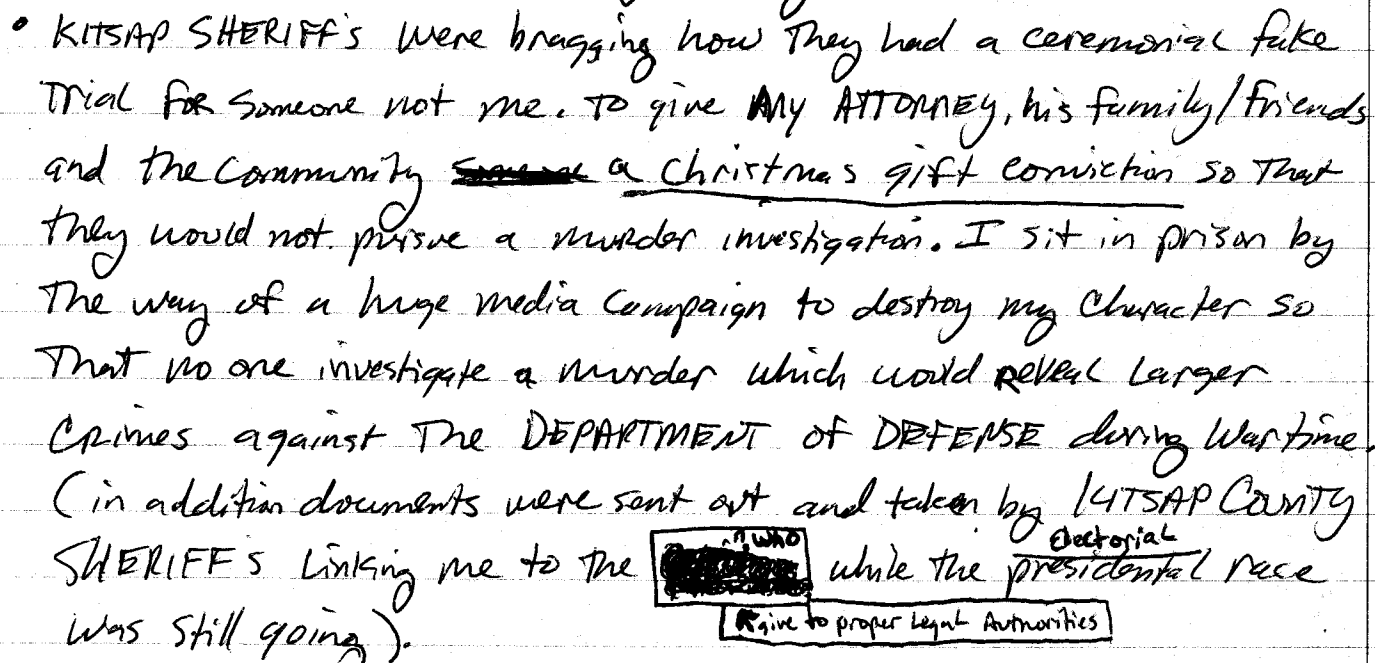 • KITSAP SHERIFF's were bragging how They had a ceremonial fake
Trial FOR Someone not me. To give My ATTORNEY, his family/friends
and the Community a Christmas gift conviction so That
they would not. pursue a murder investigation. I sit in prison by
The way of a huge media Campaign to destroy my Character so
That no one investigate a murder which would Reveal Larger
Crimes against The DEPARTMENT of DEFENSE during Wartime.
(in addition documents were sent out and taken by KITSAP COUNTY
electorial
SHERIFF's Linking me to the who while the presidental race
give to proper Legal Authorities
was still going).